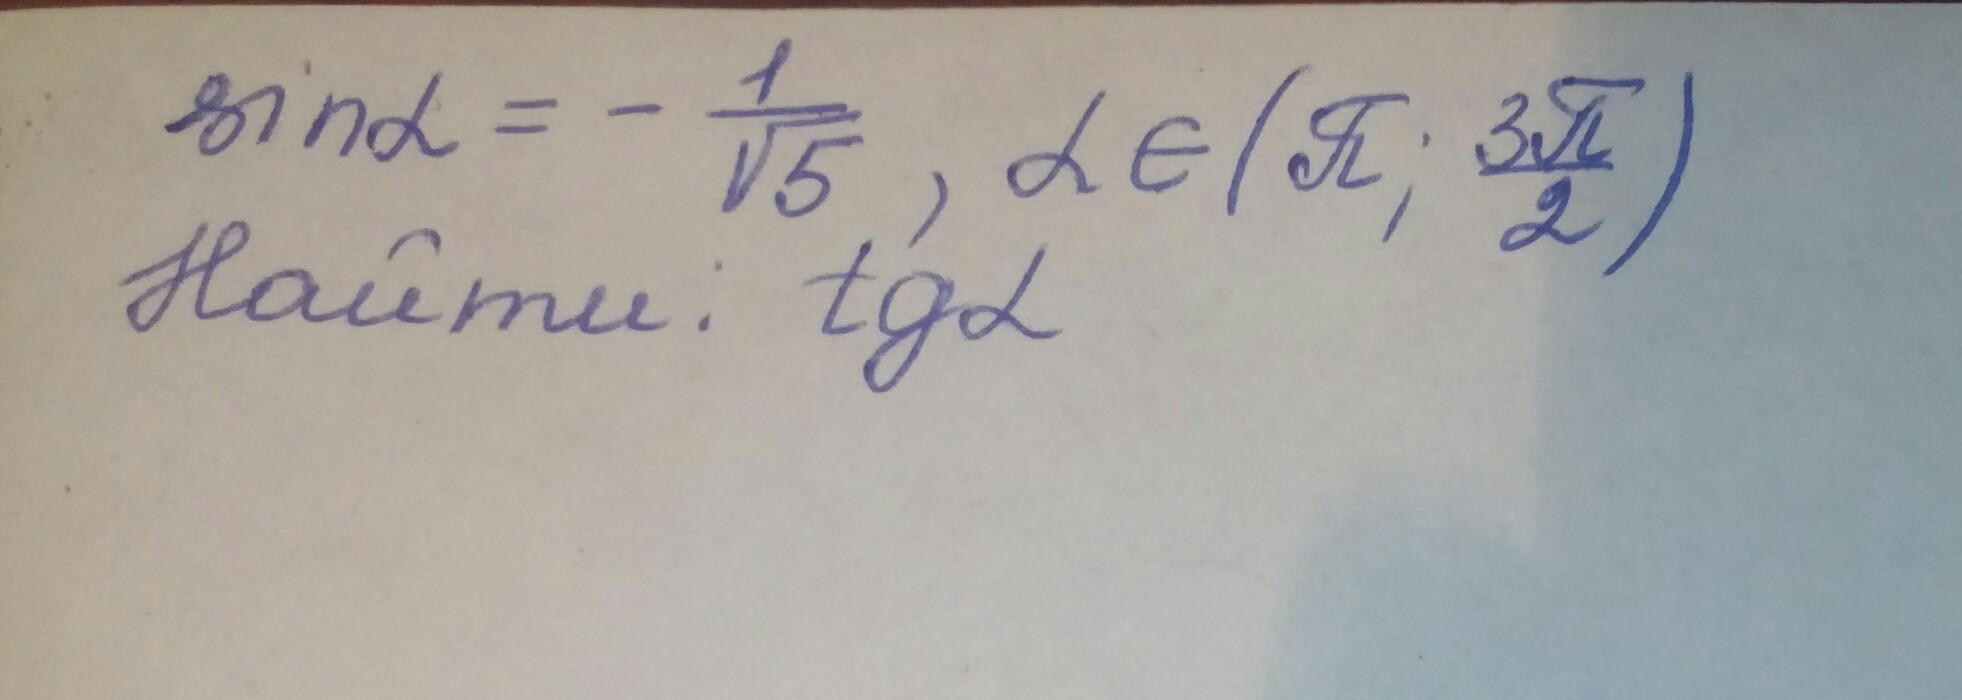 sinα = - 1/√5, α ∈ (π; 3π/2)
Найти: tgα